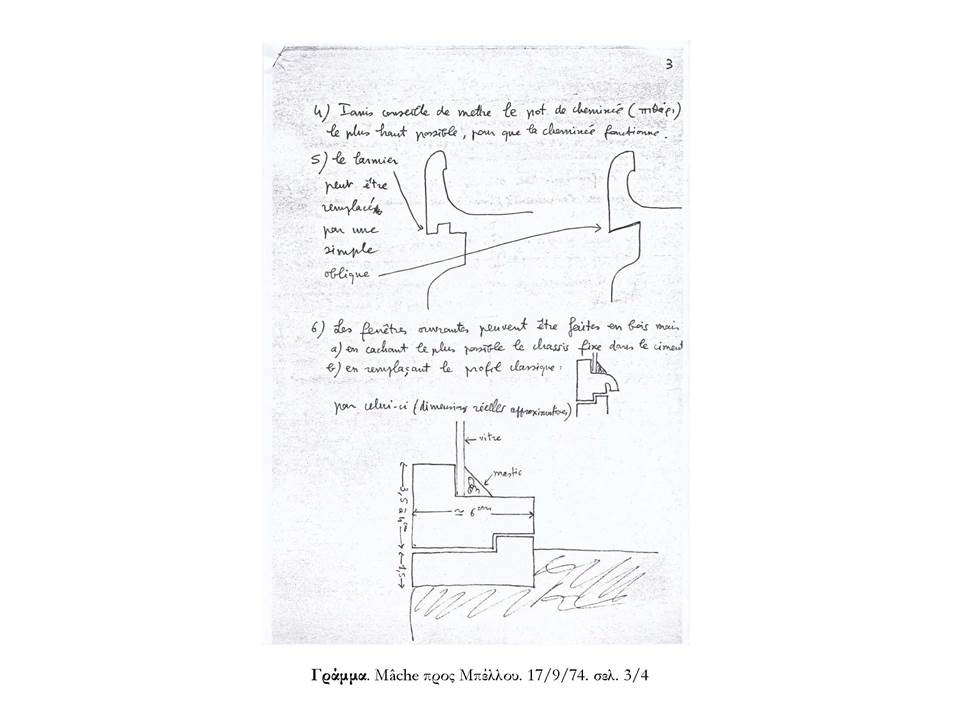 3
4) Ianis conseille de mettre le pot de cheminée (πιθάρι)
le plus haut possible, pour que la cheminée fonctionne.
5) le larmier
peut être
remplacé
par une
simple
oblique
6) Les fenêtres ouvrantes peuvent être faites en bois mais
a) en cachant le plus possible le chassis fixe dans le ciment
b) en remplaçant le profil classique :
par celui-ci (dimensions réelles approximatives)
vitre
mastic
≃ 6 cm
3,5 à 4 cm
1,5
Γράμμα. Mâche προς Μπέλλου. 17/9/74. σελ. 3/4